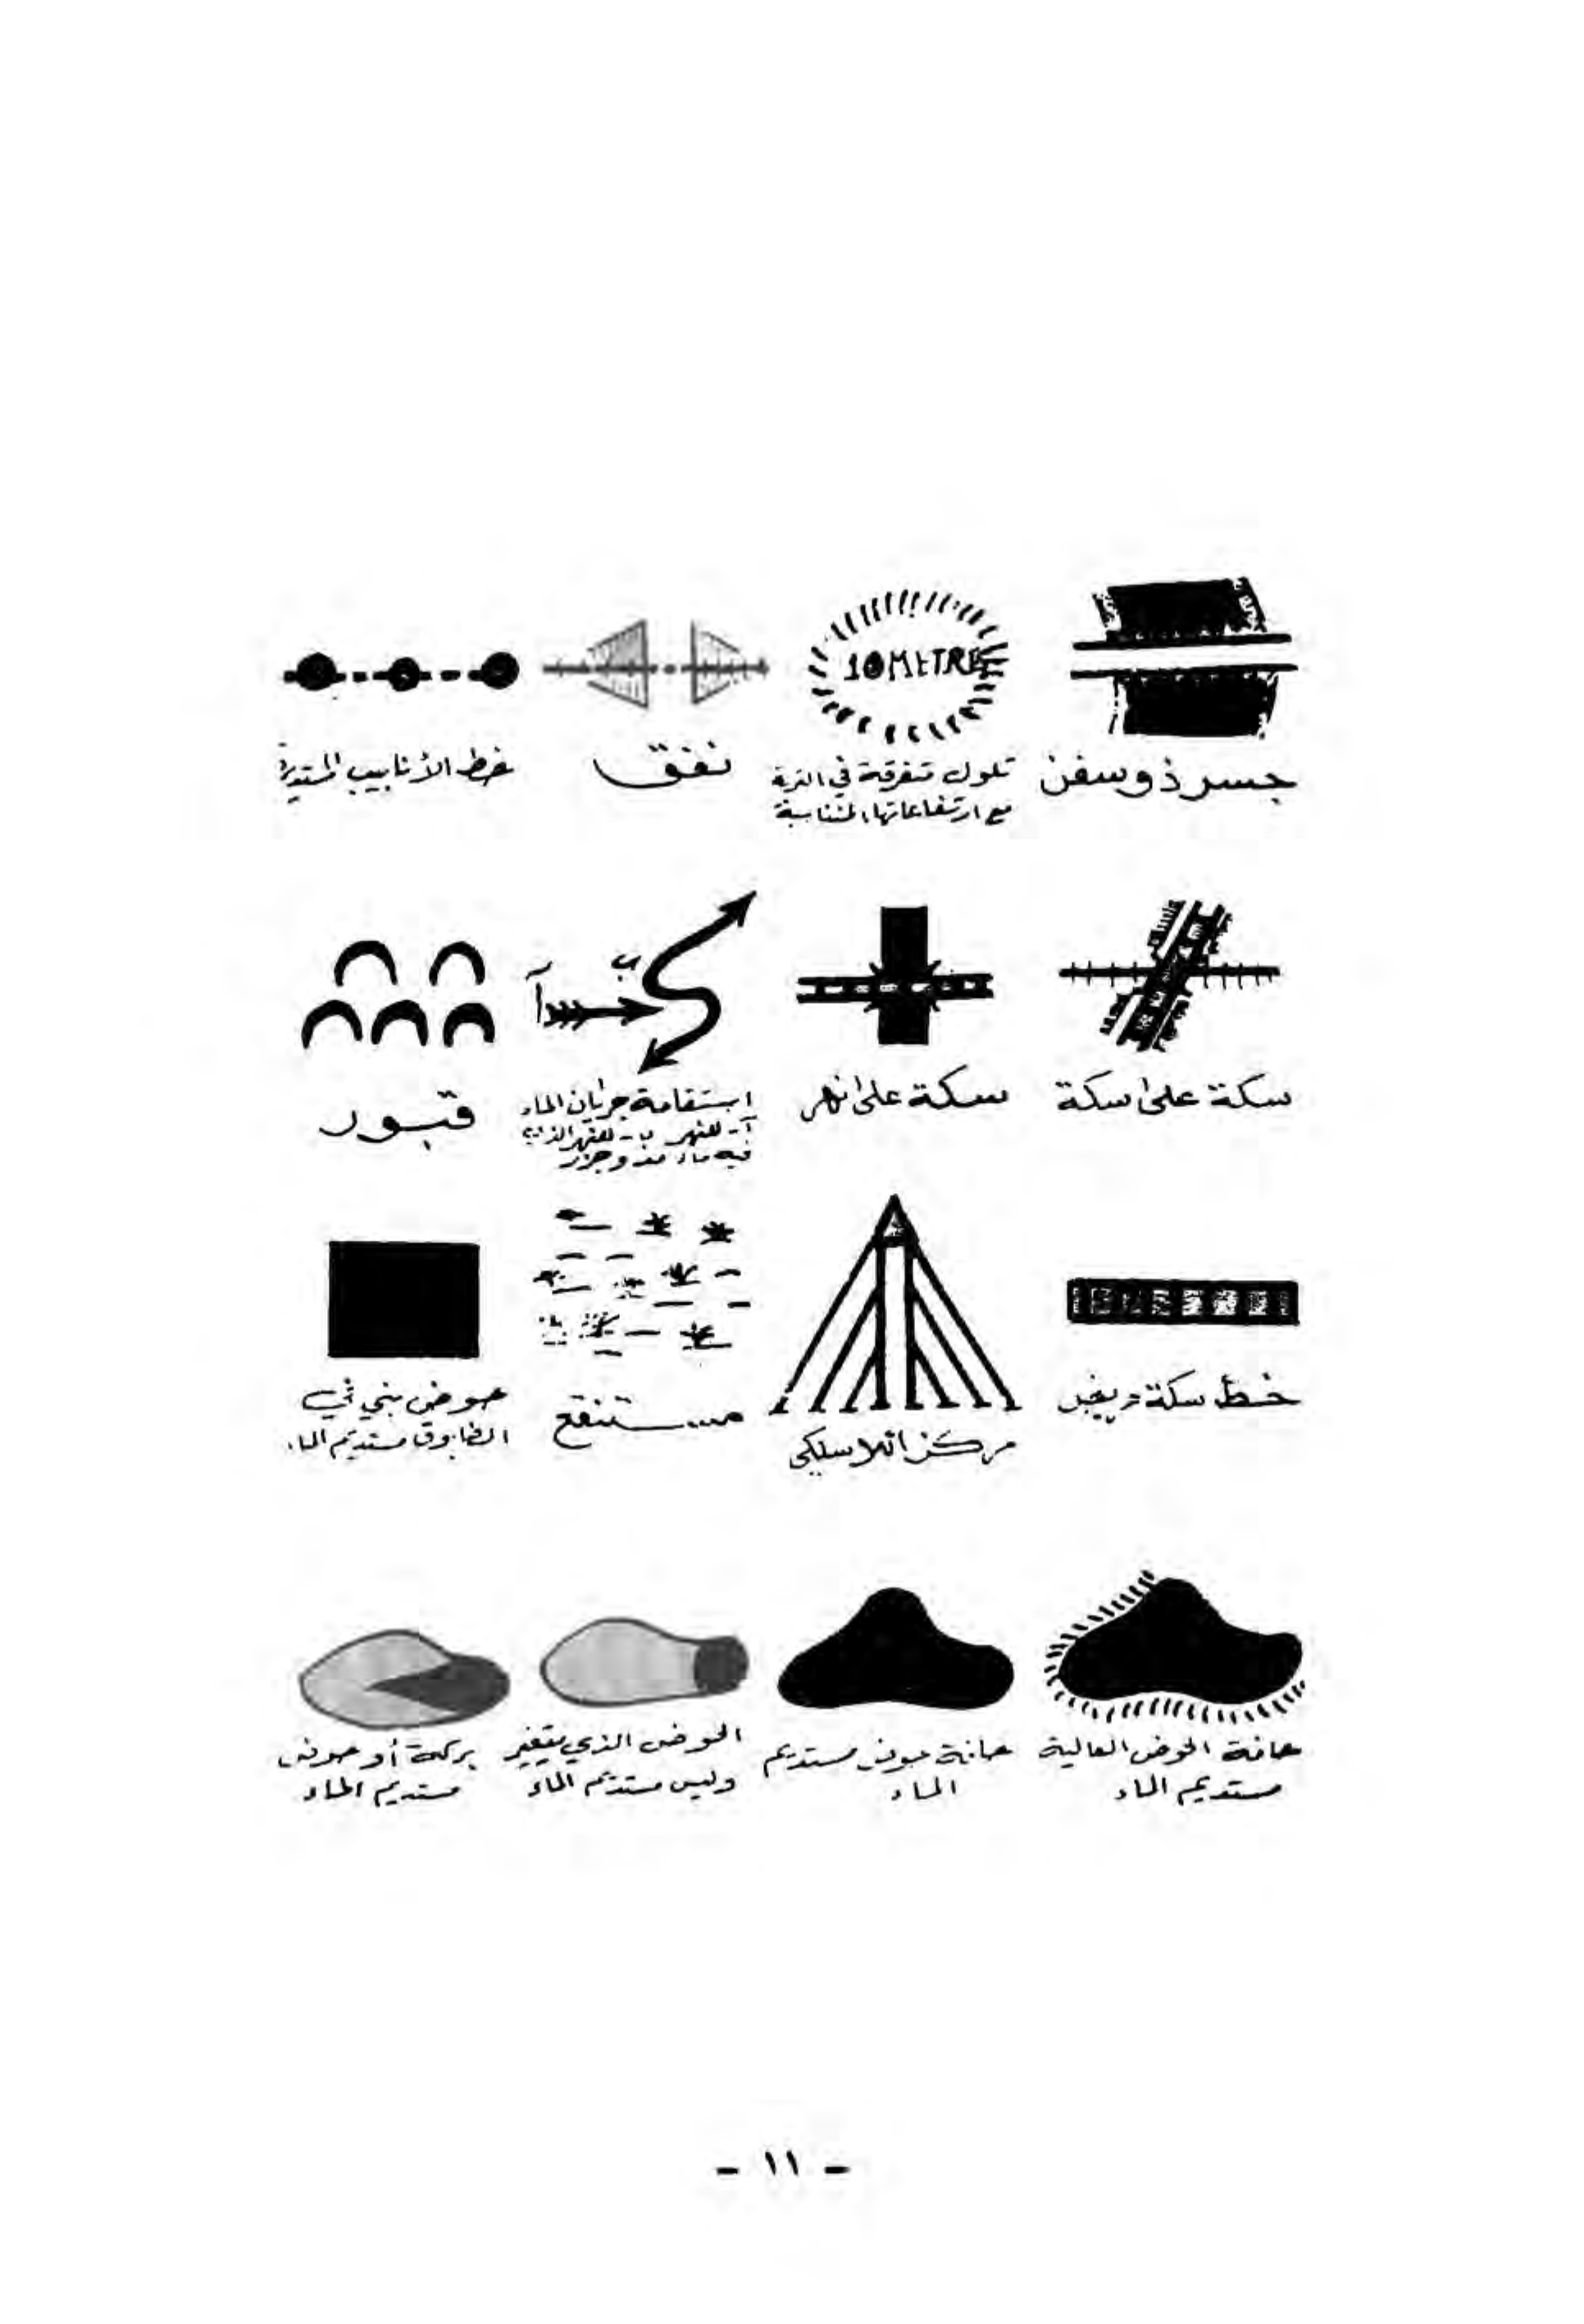 10 METRES
جسر ذو سفن
تلول متفرقة في التربة
مع ارتفاعاتها المتناسبة
نفق
خط الأنابيب المستديرة
سكة على سكة
سكة على نهر
ب
آ
استقامة جريان الماء
آ- للنهر ب- للنهر الذي
فيه ماء مد وجزر
قبور
خط سكة عريض
مركز اللاسلكي
مستنقع
حوض بني في
الطابوق مستديم الماء
حافة الحوض العالية
مستديم الماء
حافة حوض مستديم
الماء
الحوض الذي يتغير
وليس مستديم الماء
بركة أو حوض
مستديم الماء
- ١١ -